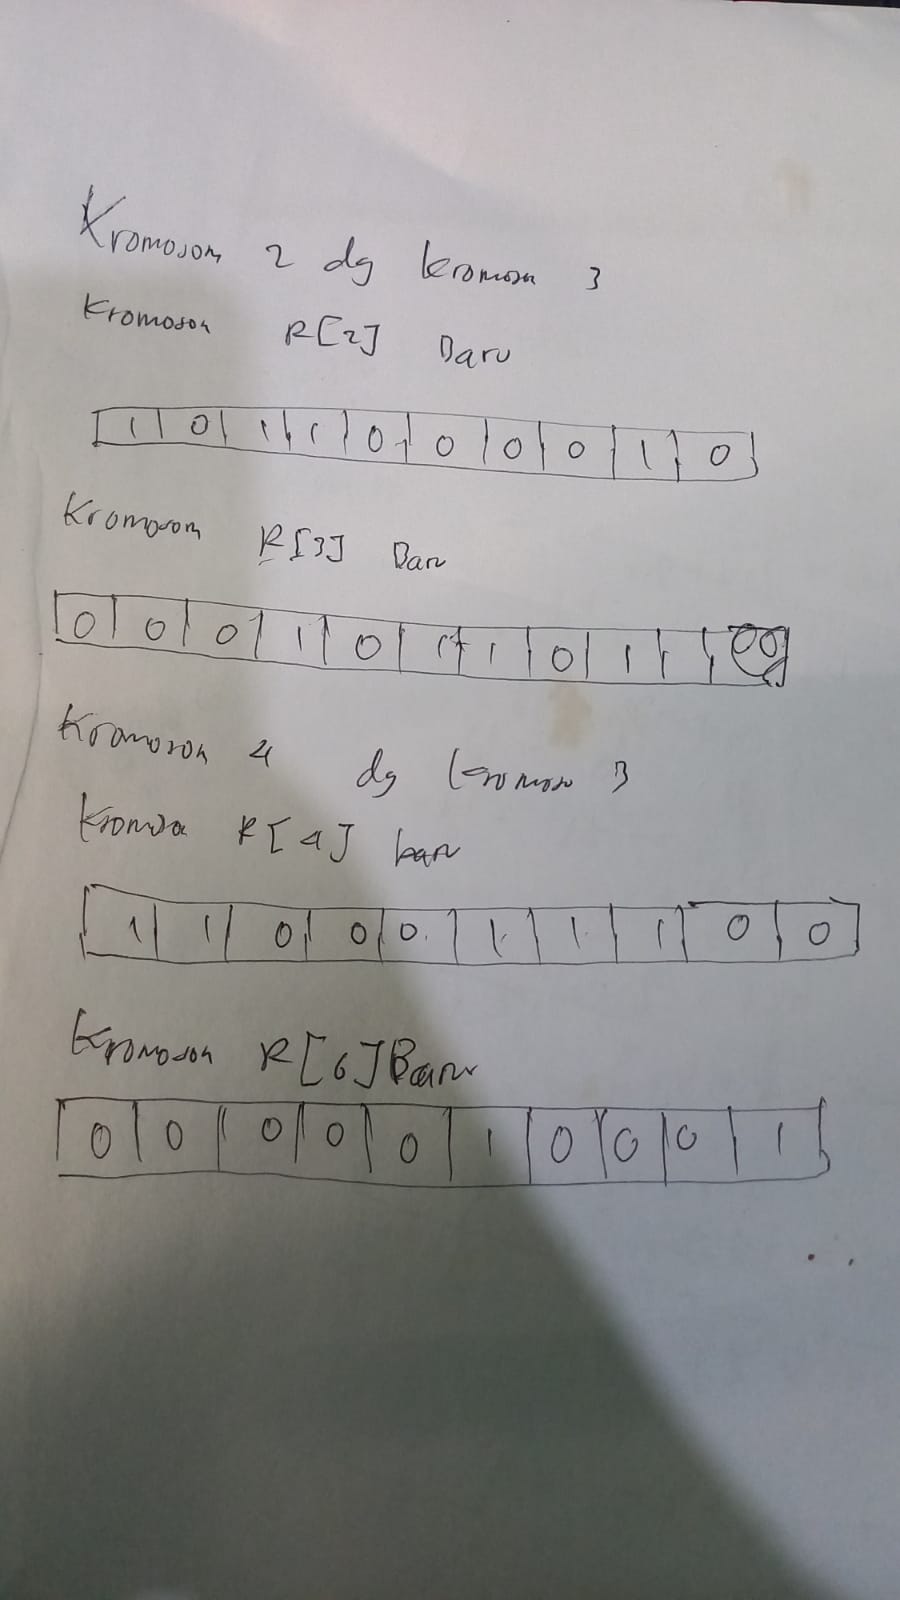 Kromosom 2 dg kromosm 3
Kromoson R[2] Baru
1 0 1 1 0 0 0 0 1 0
Kromosom R[3] Baru
0 0 0 1 0 1 1 0 1 1
Kromoson 4 dg kromoso 3
R[4] baru
1 1 0 0 0 1 1 1 0 0
Kromoson R[6] Baru
0 0 0 0 0 1 0 0 0 1